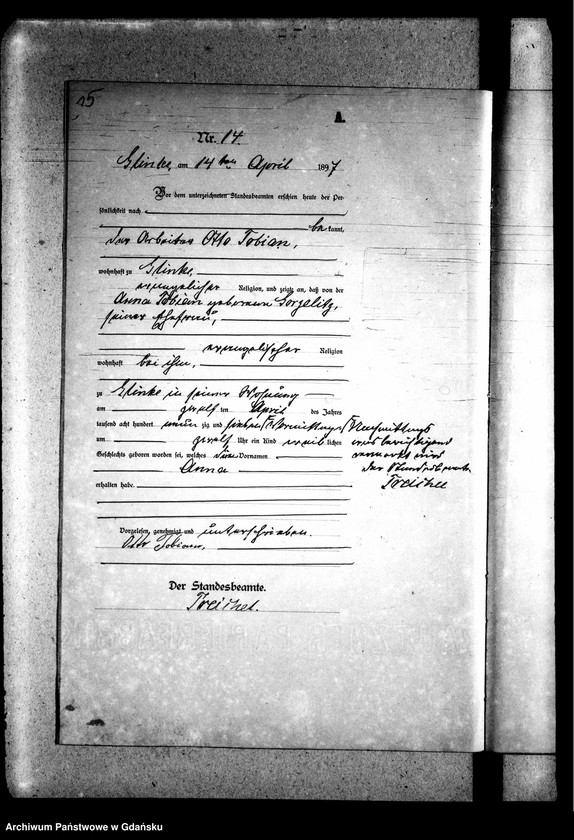 15
A.
Nr. 14.
Glinke, am 14ten April 1897
Vor dem unterzeichneten Standesbeamten erschien heute der Per-
sönlichkeit nach
be kannt,
der Arbeiter Otto Tobian,
wohnhaft zu Glinke,
evangelischer Religion, und zeigte an, daß von der
Anna Tobian geborenen
seiner Ehefrau,
evangelischer Religion
wohnhaft bei ihm,
zu Glinke in seiner Wohnung
am zwölf ten April des Jahres
tausend acht hundert neun zig und sieben Vormittags
um zwölf Uhr ein Kind weib lichen
Geschlechts geboren worden sei, welches den Vornamen
Anna
erhalten habe.
Nachmittags
was berichtigend
vermerkt wird
Der Standesbeamte
Vorgelesen, genehmigt und unterschrieben.
Otto Tobian,
Der Standesbeamte.
Archiwum Państwowe w Gdańsku